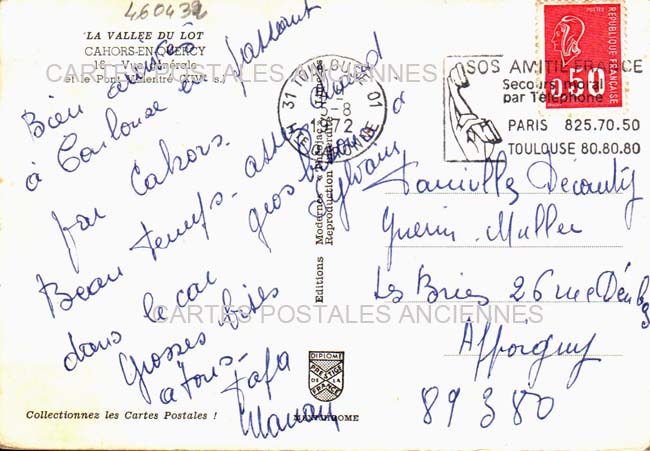 460432
LA VALLÉE DU LOT
CAHORS-EN-QUERCY
18 - Vue générale
et le Pont Valentré (XIVe s.)
CARTES POSTALES ANCIENNES
Bien arrivés
à Toulouse en passant
par Cahors.
Beau temps - assez chaud
dans le car gros bisous à
Sylvain
Grosses bises
à tous - Fafa
Manou
Collectionnez les Cartes Postales !
Editions Modernes
Reproduction interdite
DIPLOME
PRESTIGE
DE LA
FRANCE
MEXICHROME
31 TOULOUSE 01
-8
1972
HTE GARONNE
SOS AMITIE FRANCE
Secours moral
par Téléphone
PARIS 825.70.50
TOULOUSE 80.80.80
POSTES
0,50
REPUBLIQUE FRANÇAISE
Familles
Guerin - Muller
Les Bries 26 rue
Appoigny
89 380
CARTES POSTALES ANCIENNES